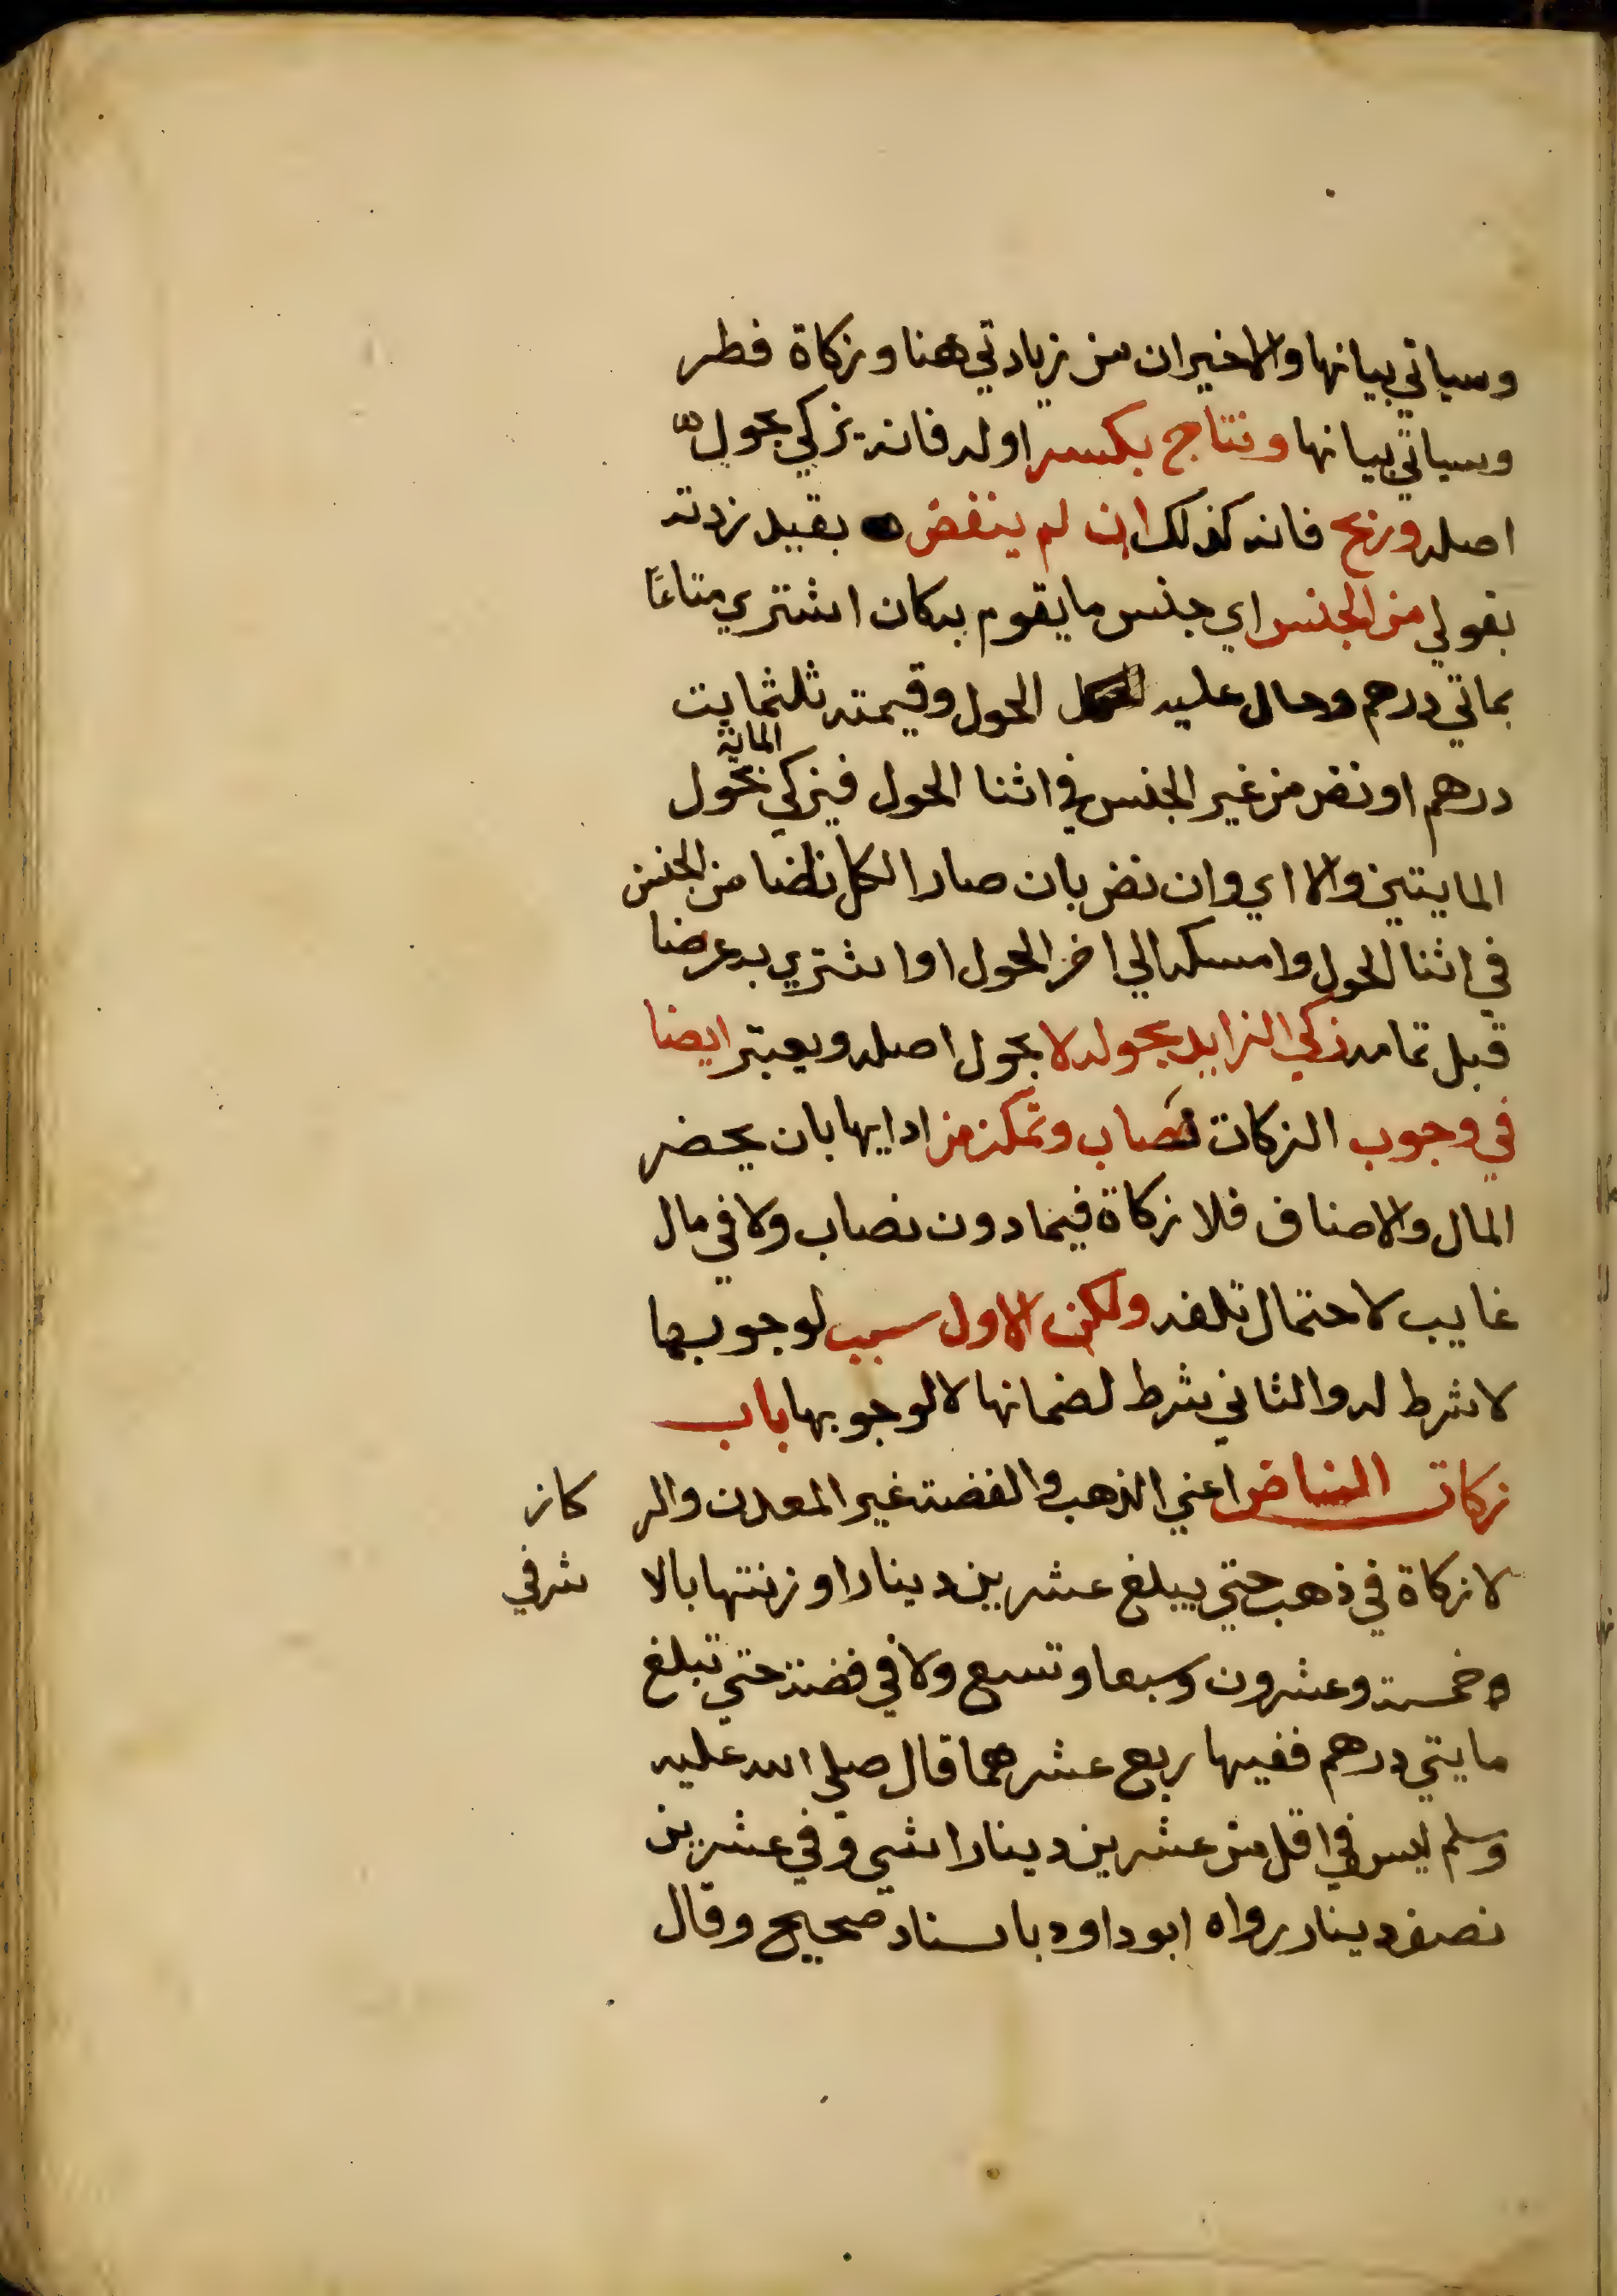 وسياتي بيانها والاخيران من زيادتي هنا وزكاة فطر
وسياتي بيانها ونتاج بكسر اوله فانه يزكي بحول
اصله وربح فانه كذلك ان لم ينض بقيد زدته
بقولي من الجنس اي جنس ما يقوم به كان اشتري متاعًا
بماتي درهم وحال عليه الحول وقيمته ثلثمايت
درهم او نض من غير الجنس في اثنا الحول فيزكي المائة بحول
المايتين والا اي وان نض بان صار الكل ناضا من الجنس
في اثنا الحول وامسكه الي اخر الحول او اشتري به عرضا
قبل تمامه زكي الزايد بحوله لا بحول اصله ويعتبر ايضا
في وجوب الزكات نصاب وتمكن من ادايها بان يحضر
المال والاصناف فلا زكاة فيما دون نصاب ولا في مال
غايب لاحتمال تلفه ولكن الاول سبب لوجوبها
لا شرط له والثاني شرط لضمانها لا لوجوبها باب
زكات الناض اعني الذهب والفضة غير المعدن والر كاز
لا زكاة في ذهب حتي يبلغ عشرين دينارا وزنتها بالا شرفي
خمسة وعشرون وسبعا وتسع ولا في فضة حتي تبلغ
مايتي درهم ففيها ربع عشرهما قال صلي الله عليه
وسلم ليس في اقل من عشرين دينارا شي وفي عشرين
نصف دينار رواه ابو داود باسناد صحيح وقال